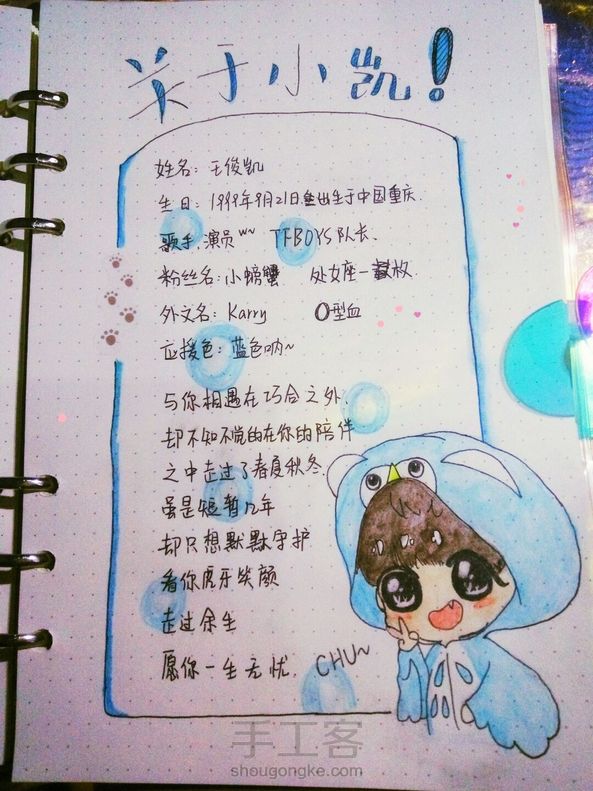 关于小凯!
姓名: 王俊凯
生日: 1999年9月21日出生于中国重庆.
歌手,演员 ww TFBOYS 队长、
粉丝名:小螃蟹 处女座一枚
外文名: Karry O型血
应援色: 蓝色呐~
与你相遇在巧合之外.
却不知不觉的在你的陪伴
之中走过了春夏秋冬.
虽是短暂几年
却只想默默守护
看你虎牙笑颜
走过余生
愿你一生无忧, CHU~
手工客
shougongke.com